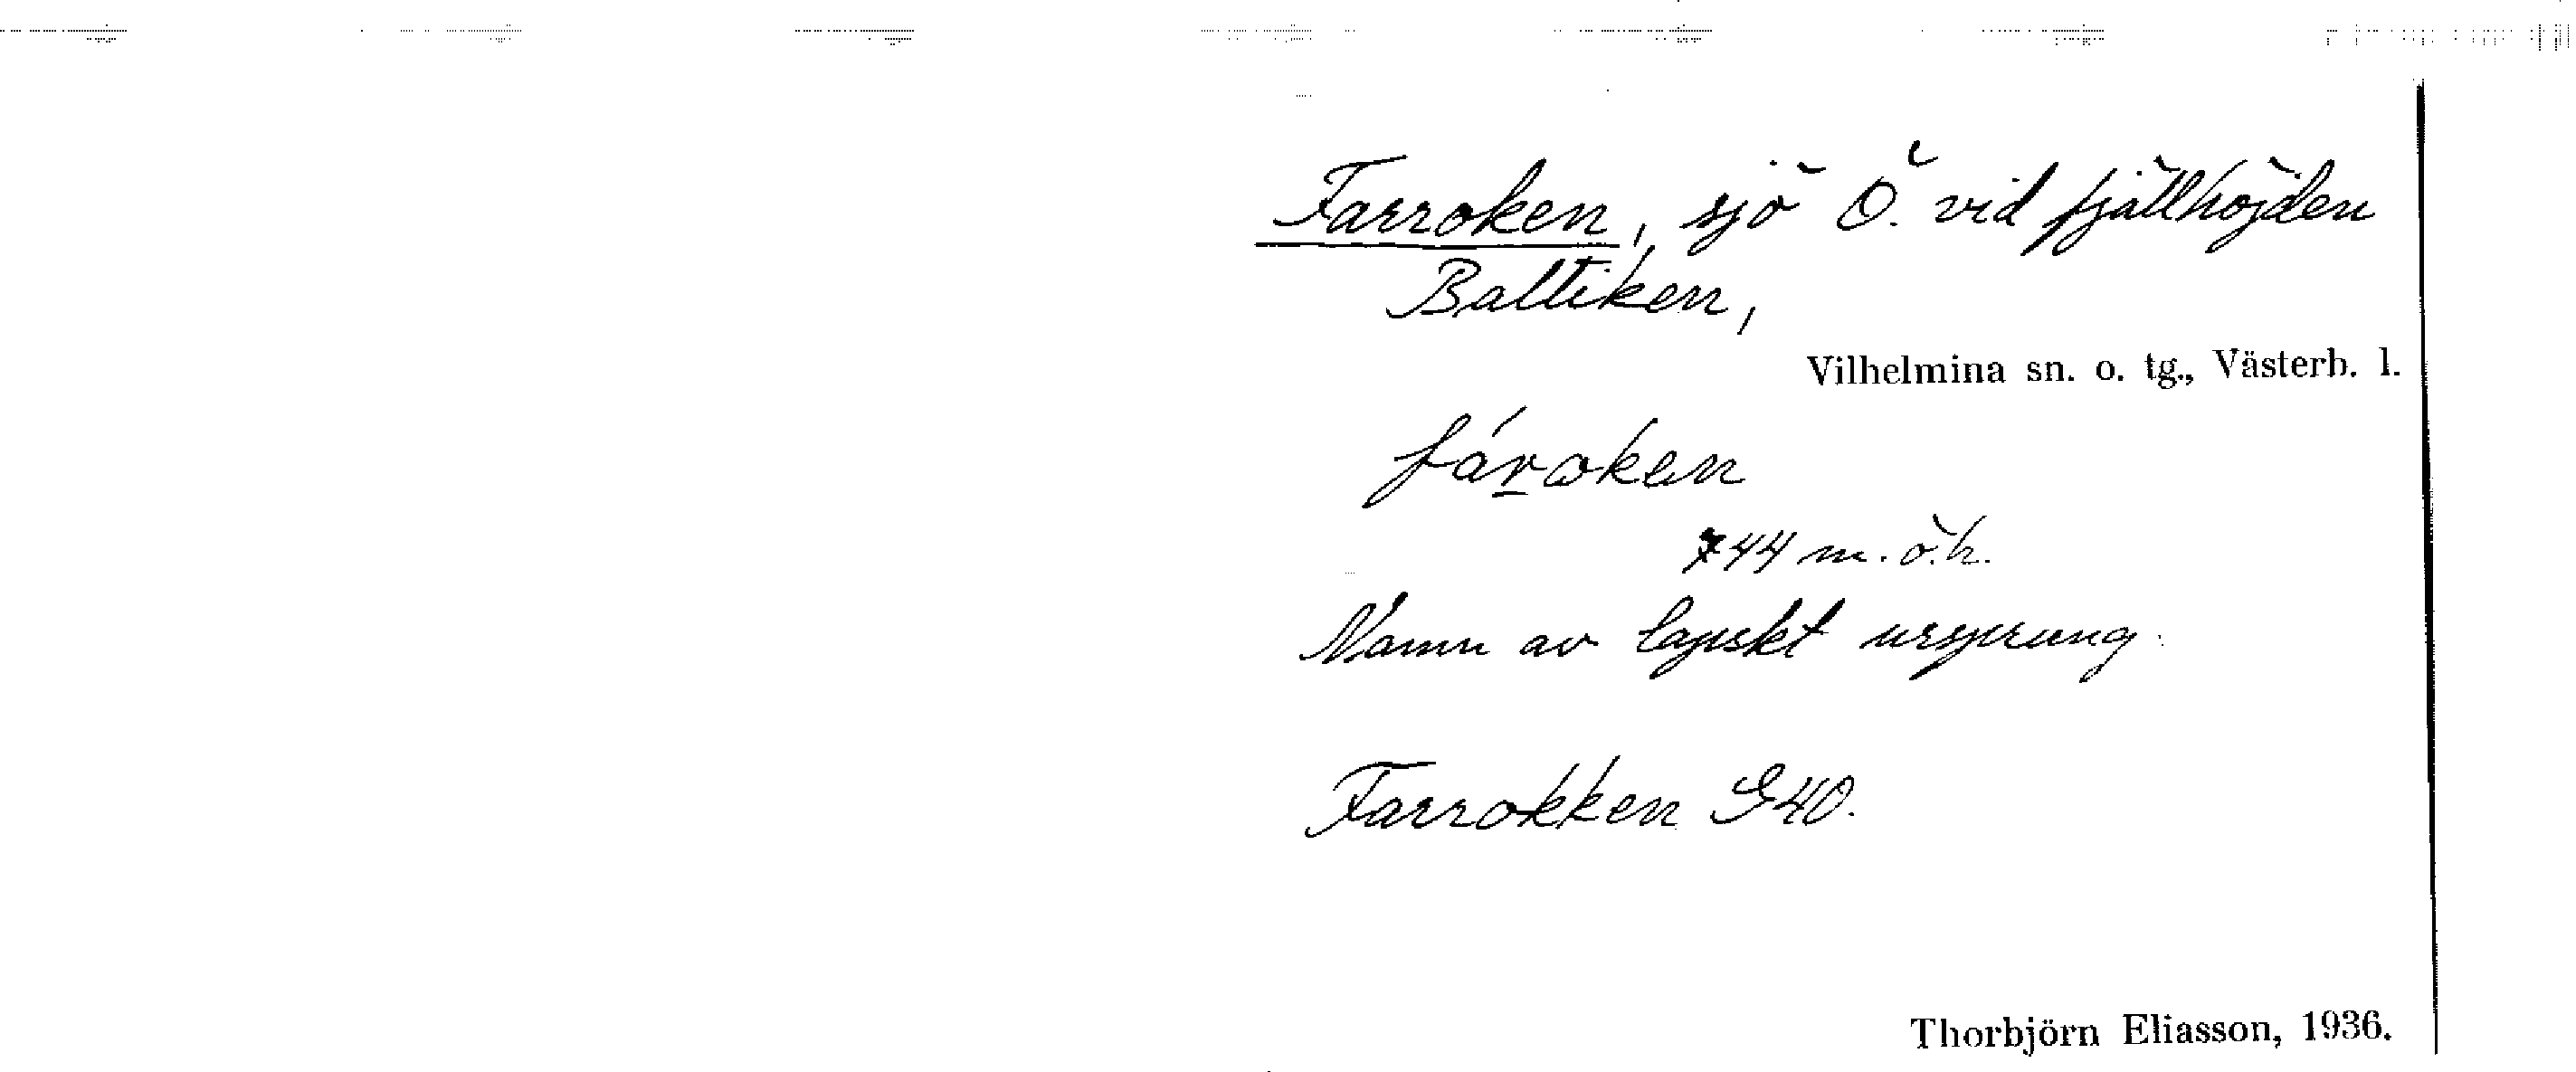 Farroken, sjö Ö. vid fjällhöjden
Baltiken,
Vilhelmina sn. o. tg., Västerb. l.
fároken
744 m. ö. h.
Namn av lapskt ursprung.
Farrokken G40.
Thorbjörn Eliasson, 1936.